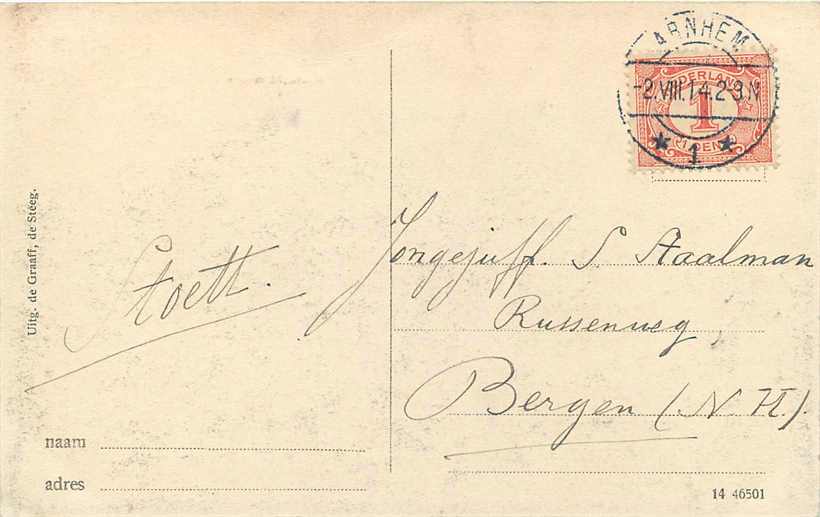 ARNHEM
NEDERLAND
-2.VIII.14.2-3.N
1
1 CENT
* 1 *
Jongejuff. S. Staalman
Russenweg,
Bergen (N.H.).
Stoett.
Uitg. de Graaff, de Stéeg.
naam
adres
14 46501